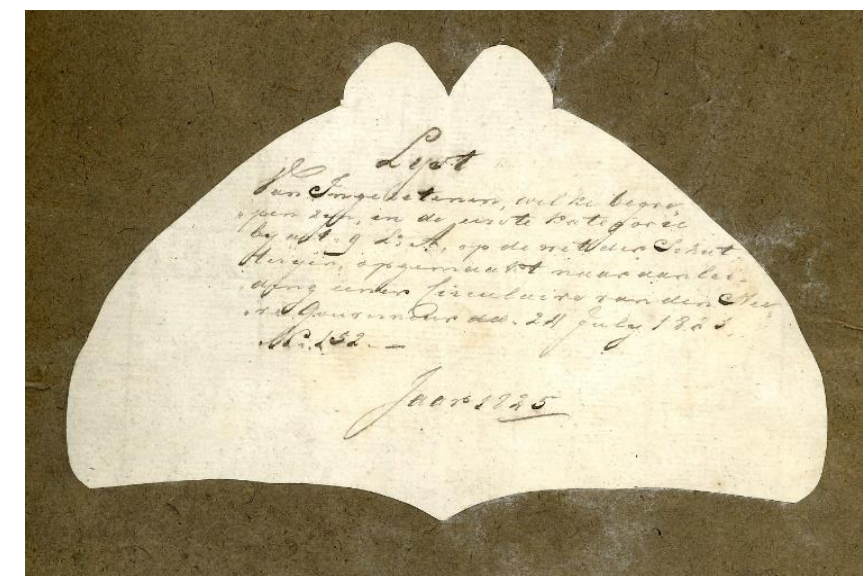 Lyst
Van Ingezetenen, welke begre„
„pen zyn, in de eerste kategorie
by art. 9 L: A, op de wet der Schut
teryen, opgemaakt naar aanlei„
ding eener Circulaire van den Hee„
re Gouverneur dd. 24 July 1823.
No. 152. —
Jaar 1825